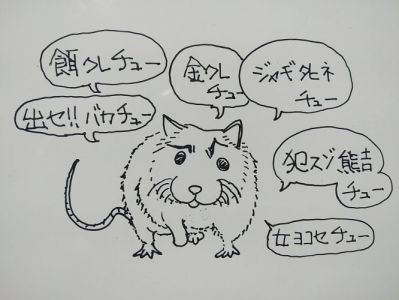 餌クレチュー
金クレ
チュー
ジャギタヒネ
チュー
出セ!!バカチュー
犯スゾ熊吉
チュー
女ヨコセチュー